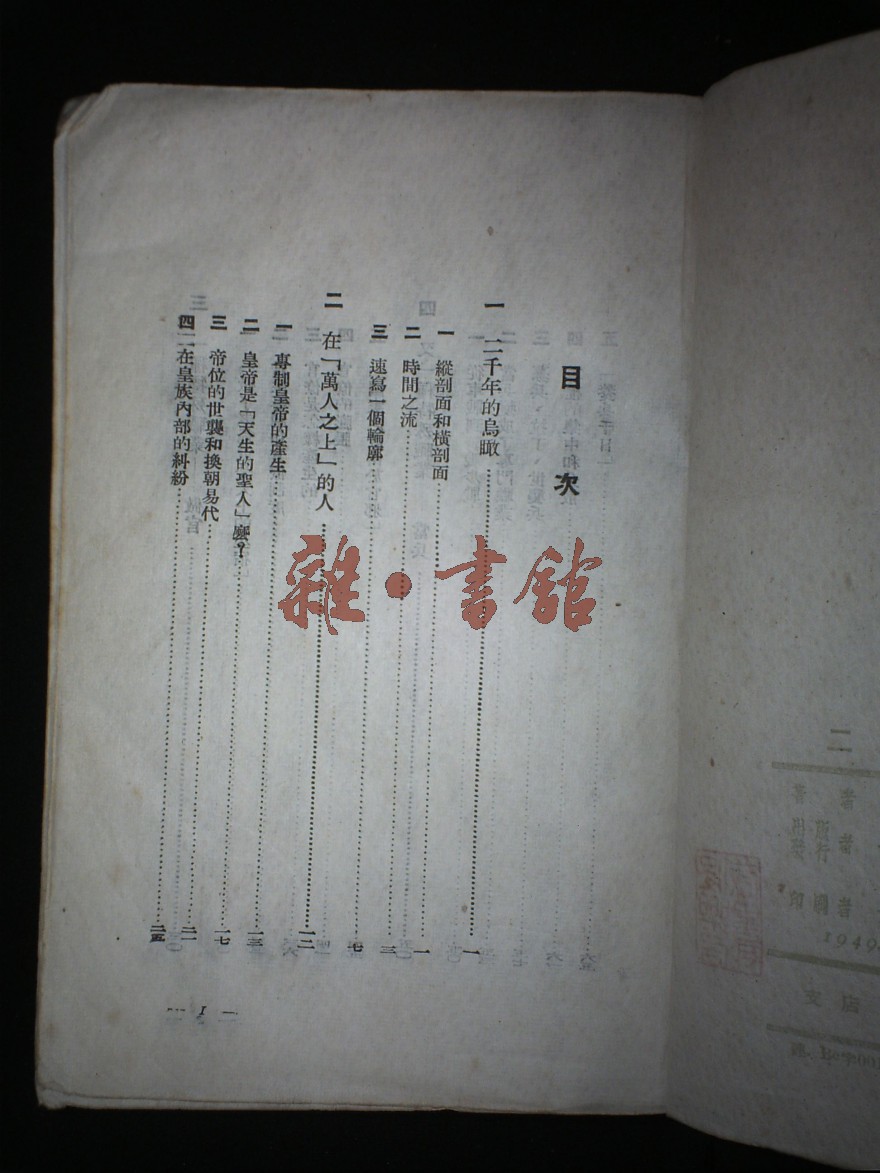 目次
一 二千年的鳥瞰……一
一 縱剖面和橫剖面……一
二 時間之流……三
三 速寫一個輪廓……七
二 在「萬人之上」的人……一二
一 專制皇帝的產生……一三
二 皇帝是「天生的聖人」麼？……一七
三 帝位的世襲和換朝易代……二一
四 在皇族內部的糾紛……二五
— I —
雜·書館
二
印刷者
1949
支店